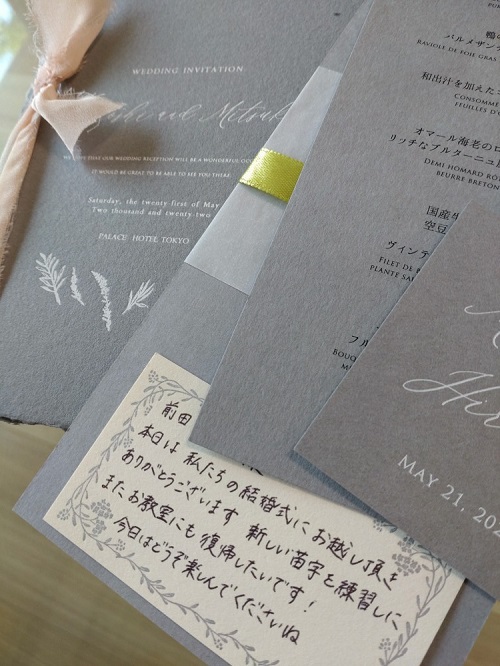 WEDDING INVITATION
WE HOPE THAT OUR WEDDING RECEPTION WILL BE A WONDERFUL
IT WOULD BE GREAT TO BE ABLE TO SEE YOU THERE.
Saturday, the twenty first of May
Two thousand and twenty-two
PALACE HOTEL TOKYO
鴨の
パルメザンチ
RAVIOLE DE FOIE GRAS
和出汁を加えたコ
CONSOMME
FEUILLES D'O
オマール海老のロ
リッチなブルターニュ
DEMI HOMARD RÔT
BEURRE BRETON
国産牛
空豆
ヴィンテ
FILET DE
PLANTE SA
フル
BOUQ
MAY 21, 202
前田
本日は 私たちの結婚式に お越し頂き
ありがとうございます 新しい苗字を練習しに
またお教室にも復帰したいです!
今日はどうぞ楽しんでくださいね